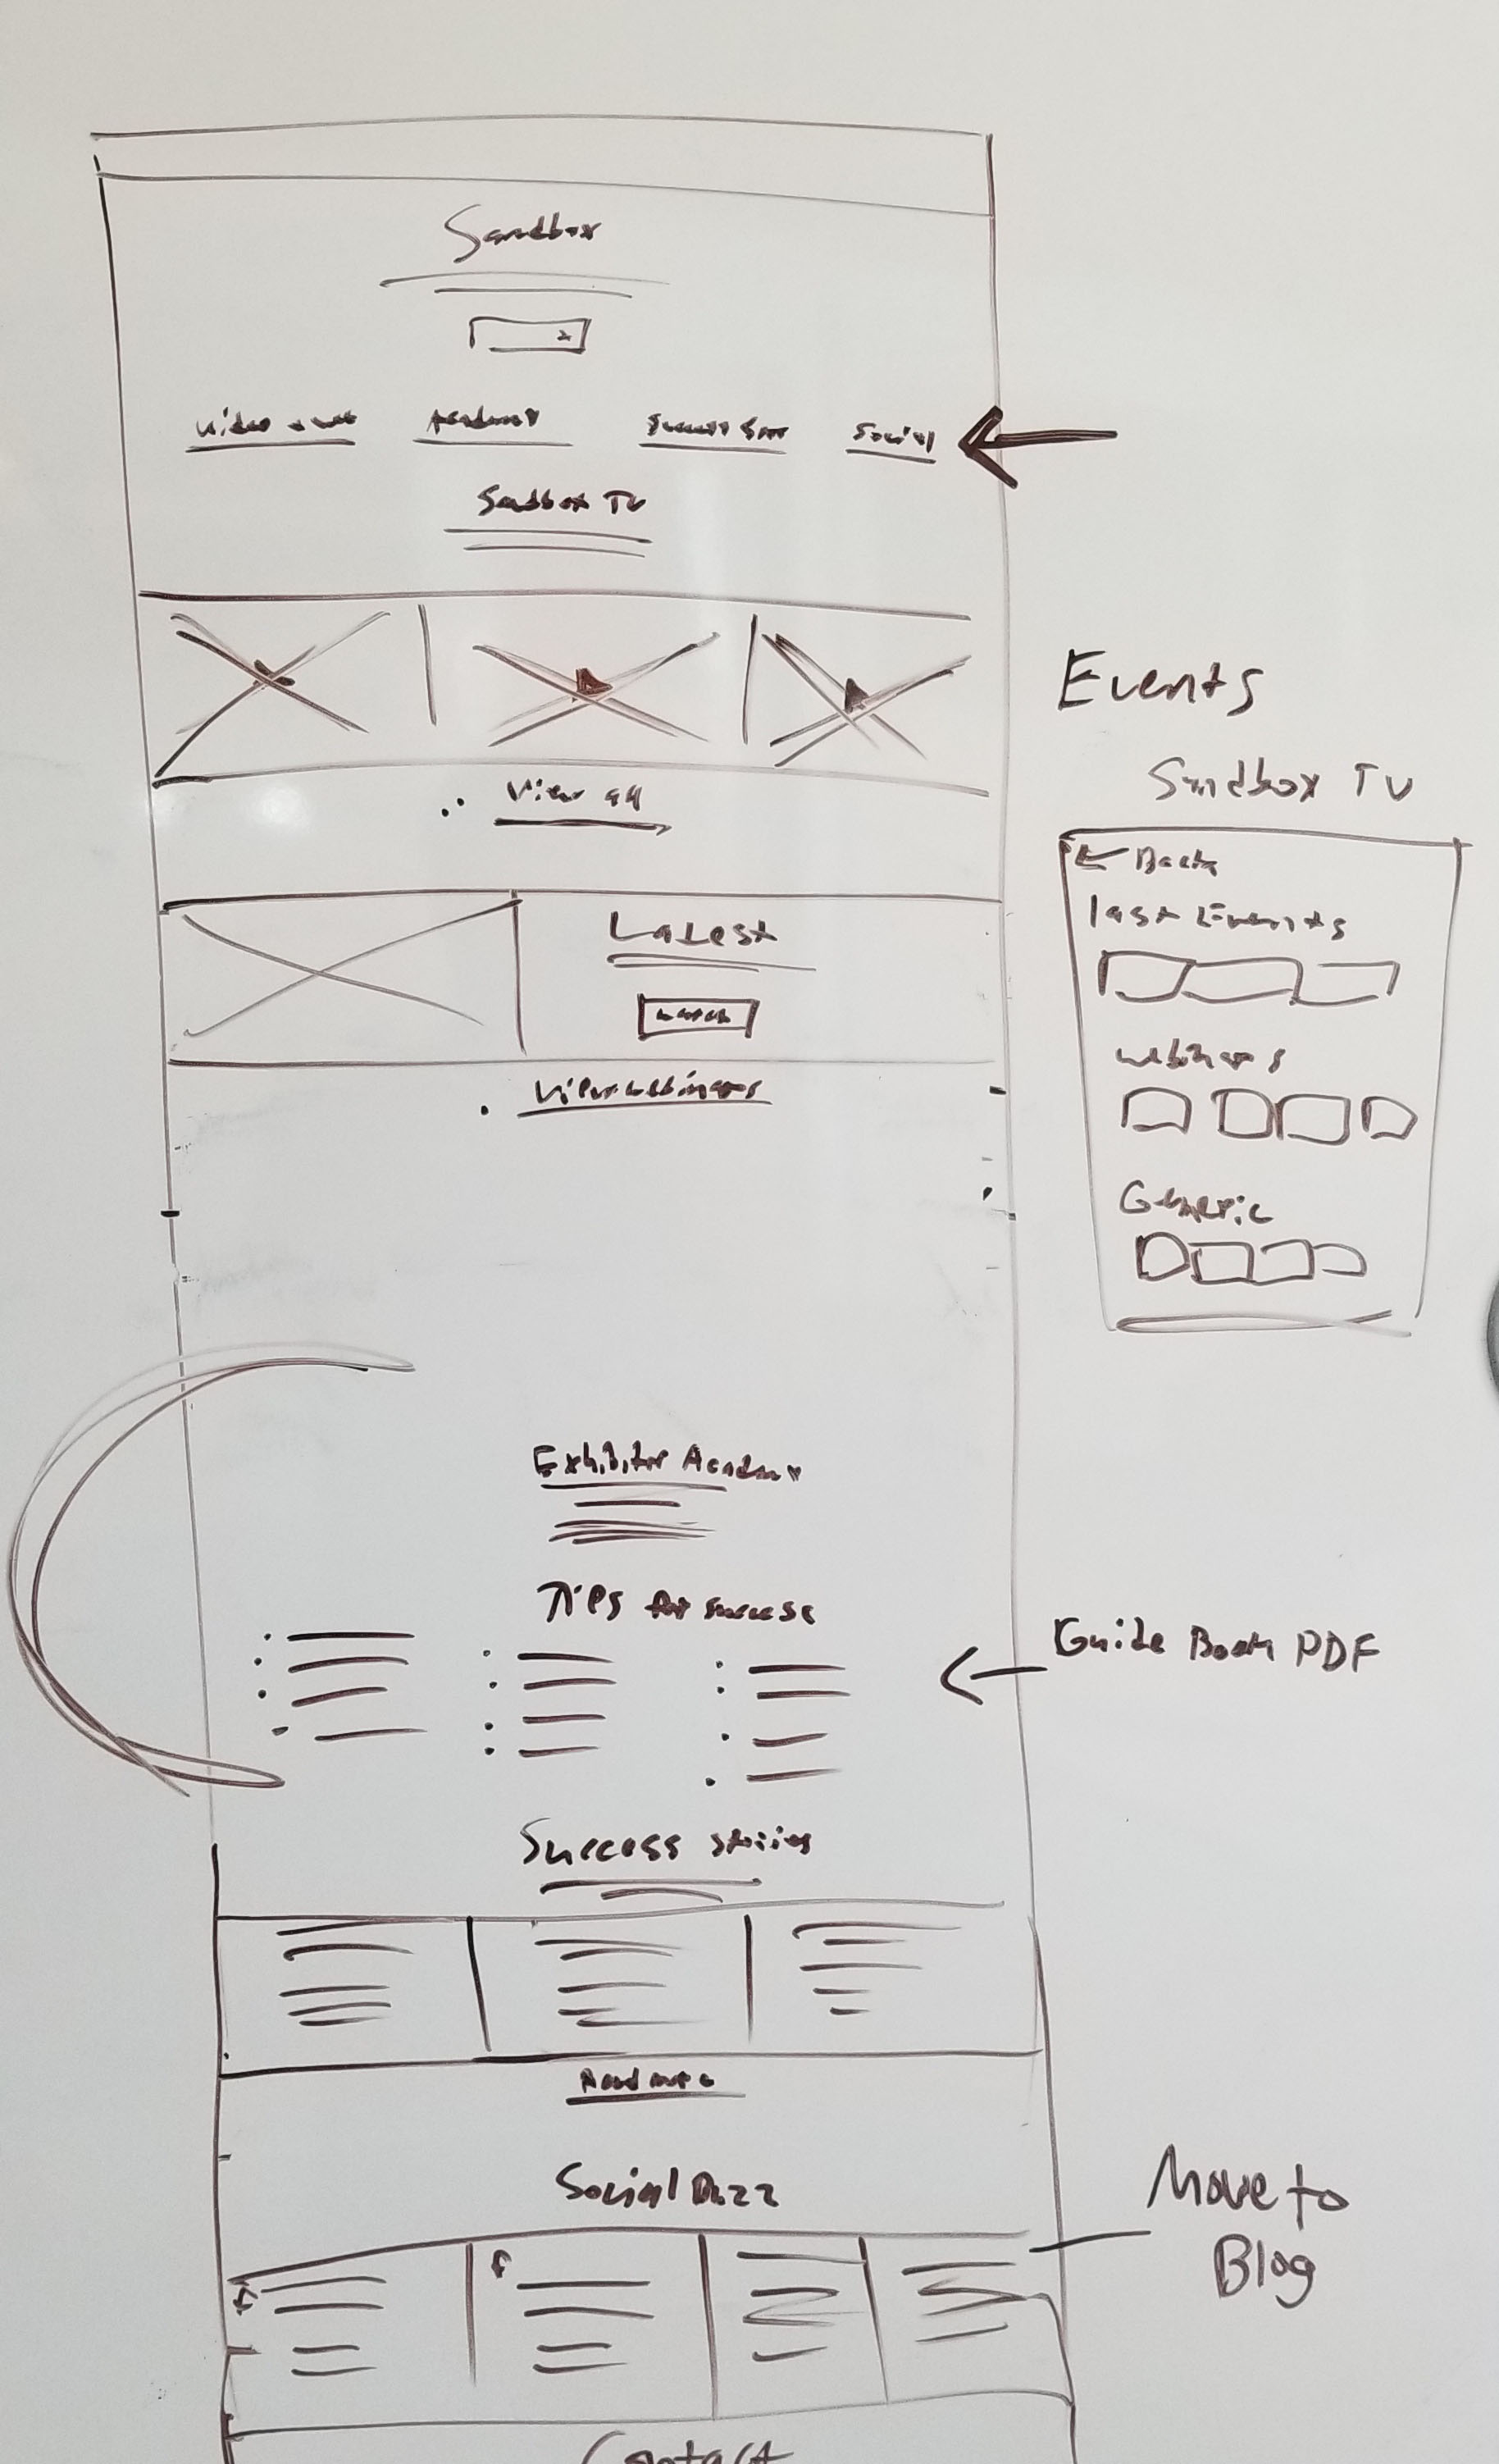 Sandbox
Video
Academy
Success
Social
Sandbox TV
View all
Latest
View webinars
Exhibitor Academy
Tips for success
Success stories
Read more
Social Buzz
Contact
Events
Sandbox TV
← Back
last Events
webinars
Generic
Guide Book PDF
Move to
Blog